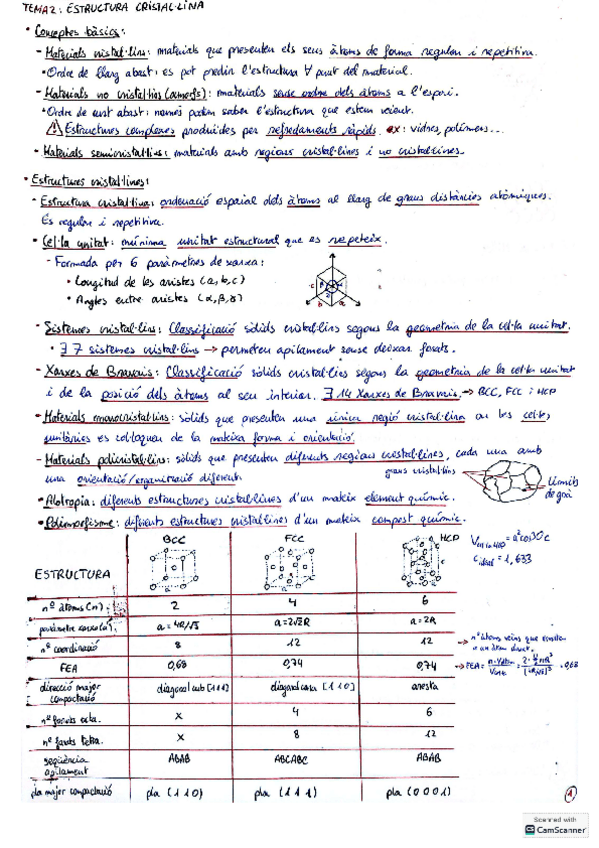 TEMA 2: ESTRUCTURA CRISTAL·LINA
• Conceptes bàsics:
- Materials cristal·lins: materials que presenten els seus àtoms de forma regular i repetitiva.
• Ordre de llarg abast: es pot predir l'estructura ∀ punt del material.
- Materials no cristal·lins (amorfs): materials sense ordre dels àtoms a l'espai.
• Ordre de curt abast: només podem saber l'estructura que estem veient.
⚠ Estructures complexes produïdes per refredaments ràpids. ex: vidres, polímers...
- Materials semicristal·lins: materials amb regions cristal·lines i no cristal·lines.
• Estructures cristal·lines:
- Estructura cristal·lina: ordenació espaial dels àtoms al llarg de grans distàncies atòmiques.
És regular i repetitiva.
• Cel·la unitat: mínima unitat estructural que es repeteix.
- Formada per 6 paràmetres de xarxa:
• Longitud de les aristes (a,b,c)
• Angles entre aristes (α,β,γ)
- Sistemes cristal·lins: Classificació sòlids cristal·lins segons la geometria de la cel·la unitat.
• ∃ 7 sistemes cristal·lins → permeten apilament sense deixar forats.
- Xarxes de Bravais: Classificació sòlids cristal·lins segons la geometria de la cel·la unitat
i de la posició dels àtoms al seu interior. ∃ 14 Xarxes de Bravais. → BCC, FCC i HCP
- Materials monocristal·lins: sòlids que presenten una única regió cristal·lina on les cel·les
unitàries es col·loquen de la mateixa forma i orientació.
- Materials policristal·lins: sòlids que presenten diferents regions cristal·lines, cada una amb
una orientació/organització diferent.
grans cristal·lins
Límits de gra
• Alotropia: diferents estructures cristal·lines d'un mateix element químic.
• Polimorfisme: diferents estructures cristal·lines d'un mateix compost químic.
ESTRUCTURA BCC FCC HCP
c ideal = 1,633
nº àtoms (n) 2 4 6
paràmetre xarxa (a) a = 4R/√3 a = 2√2R a = 2R
nº coordinació 8 12 12
FEA 0,68 0,74 0,74
direcció major compactació diagonal cub [111] diagonal cara [110] aresta
nº forats octa. x 4 6
nº forats tetra. x 8 12
seqüència apilament ABAB ABCABC ABAB
pla major compactació pla (110) pla (111) pla (0001)
1
Scanned with
CamScanner